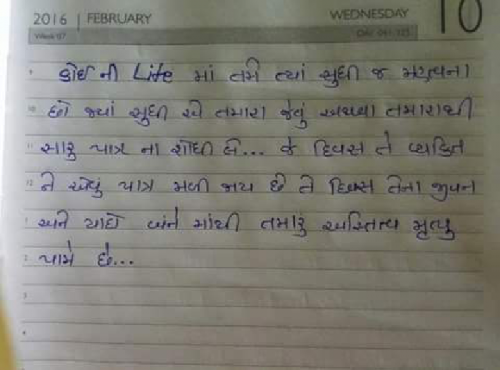 2016 | FEBRUARY WEDNESDAY 10
Week 07
9 કોઈ ની Life માં તમે ત્યાં સુધી જ મહત્વના
10 છો જ્યાં સુધી એ તમારા જેવું અથવા તમારાથી
11 સારુ પાત્ર ના શોધી લે... જે દિવસ તે વ્યકિત
12 ને એવું પાત્ર મળી જાય છે તે દિવસ તેના જીવન
1 અને યાદો બંને માંથી તમારું અસ્તિત્વ મૃત્યુ
2 પામે છે...
3
4